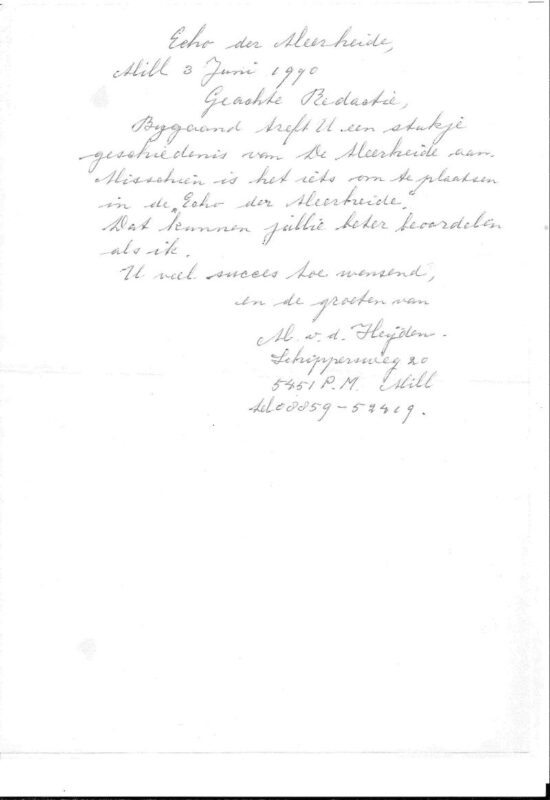 Echo der Meerheide,
Mill 3 Juni 1990
Geachte Redactie,
Bygaand treft U een stukje
geschiedenis van De Meerheide aan.
Misschien is het iets om te plaatsen
in de „Echo der Meerheide."
Dat kunnen jullie beter beoordelen
als ik.
U veel succes toe wensend,
en de groeten van
M. v. d. Heijden.
Schippersweg 20
5451 P.M. Mill
tel 08859-52419.